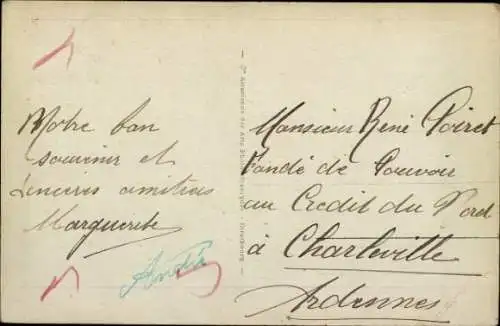 Notre bon
souvenir et
sincères amitiés
Marguerite
André
Monsieur René Poiret
Fondé de Pouvoir
au Credit du Nord
à Charleville
Ardennes